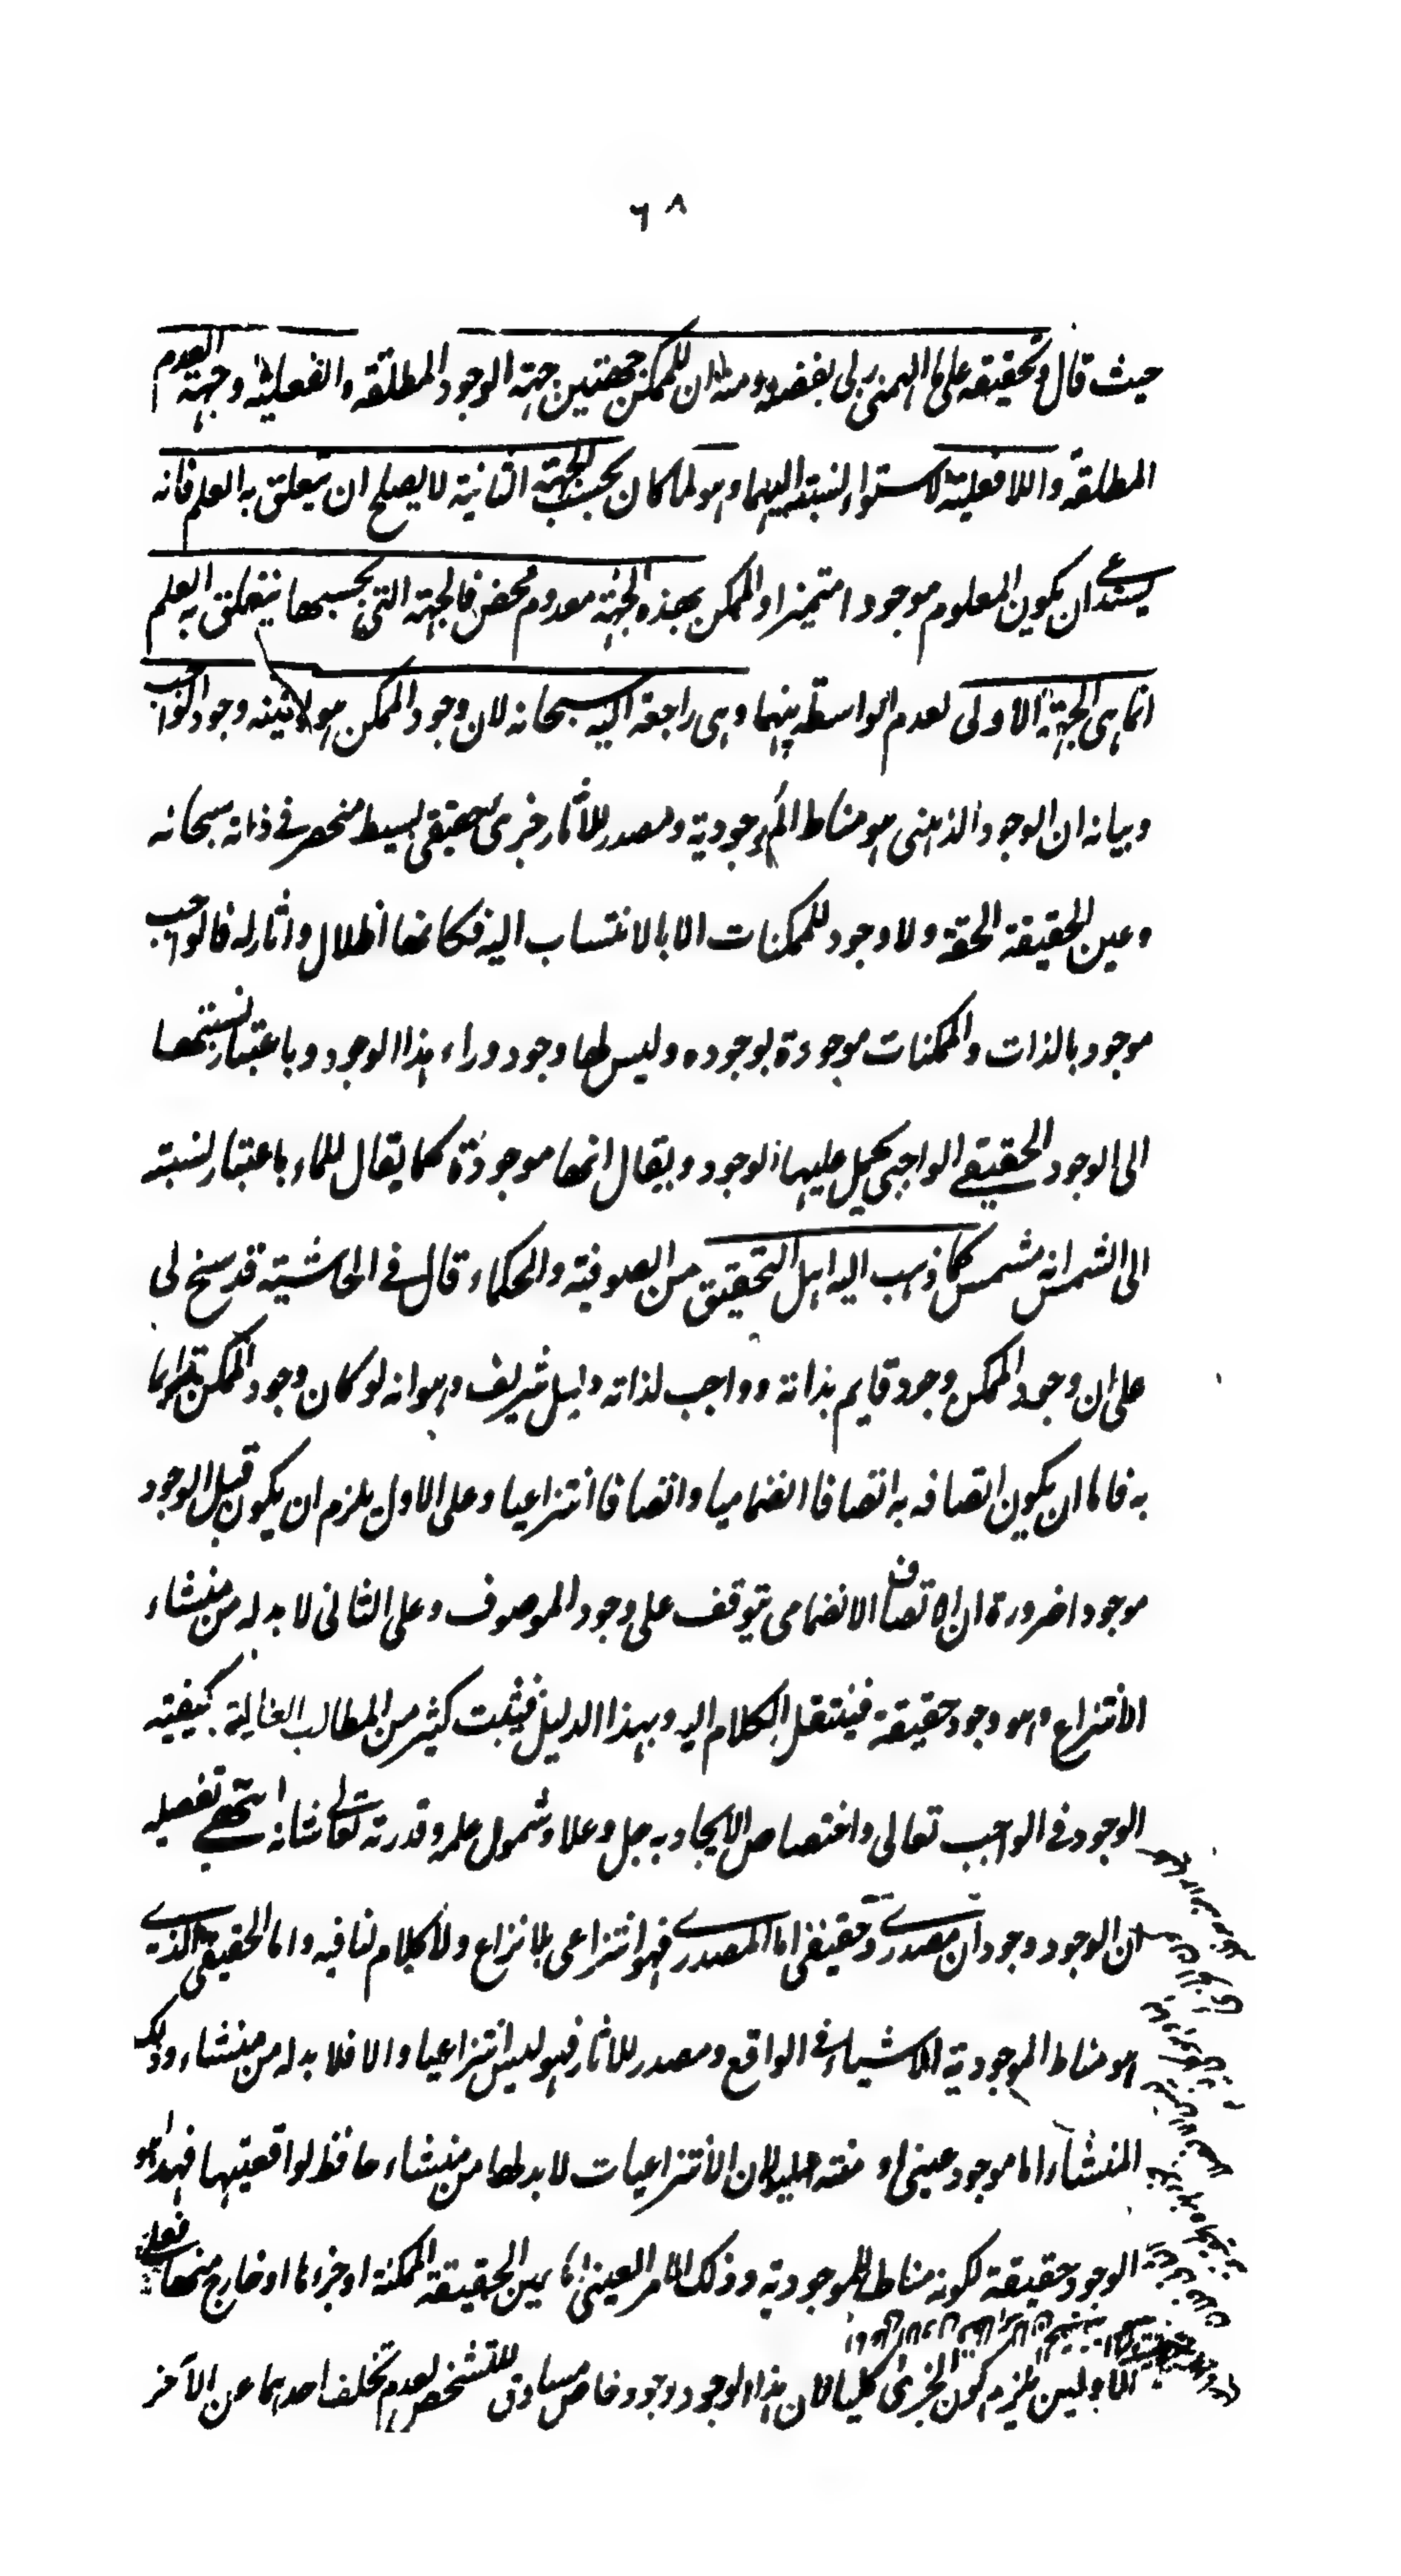 ٦٨
حيث قال وتحقيقه على ما الهمنى ربى بفضله ومنه ان للممكن جهتين جهته الوجود المطلقه والفعلية وجهته العدم
المطلقه واللافعلية لاستواء نسبته اليهما وهو لما كان بحسب الجهته الثانية لا يصلح ان يتعلق به العلم فانه
يستدعے ان يكون المعلوم موجودا متميزا والممكن بهذه الجهته معدوم محض فالجهته التى بحسبها يتعلق به العلم
انما هى الجهته الاولى لعدم الواسطه بينهما وهى راجعة اليه سبحانه لان وجود الممكن هو بعينه وجود الواجب
وبيانه ان الوجود الذى هو مناط الموجودية ومصدر للآثار جزى حقيقى بسيط منحصر فے ذاته سبحانه
وعين الحقيقة الحقة ولا وجود للممكنات الا بالانتساب اليه فكانها اظلال واثار له فالواجب
موجود بالذات والممكنات موجودة بوجوده وليس لها وجود وراء هذا الوجود وباعتبار نسبتها
الى الوجود الحقيقے الواجبى يحمل عليها الوجود ويقال انها موجودة كما يقال للماء باعتبار نسبته
الى الشمس انه مشمس كما ذهب اليه اهل التحقيق من الصوفية والحكماء قال فے الحاشية قد سنح لى
على ان وجود الممكن وجود قايم بذاته وواجب لذاته دليل شريف وهو انه لو كان وجود الممكن قايما
به فاما ان يكون اتصافه به اتصافا انضماميا واتصافا انتزاعيا وعلى الاول يلزم ان يكون قبل الوجود
موجودا ضرورة ان الاتصاف الانضمامى يتوقف على وجود الموصوف وعلى الثانى لا بد له من منشاء
الانتزاع وهو وجود حقيقة فينتقل الكلام اليه وبهذا الدليل يثبت كثير من المطالب العالية كيفية
الوجود فى الواجب تعالى واختصاص الايجاد به جل وعلا وشمول علمه وقدرته تعالى شانه انتهے تفصيله
ان الوجود وجودان مصدرے وحقيقى اما المصدرے فهو انتزاعى بلا نزاع ولا كلام لنا فيه واما الحقيقى الذے
هو مناط الموجودية الاشياء فى الواقع ومصدر للاثار فهو ليس انتزاعيا والا فلا بد له من منشاء وذلك
المنشاء اما موجود عينى او منته اليه لان الانتزاعيات لا بد لها من منشاء حافظ لواقعيتها فهذا هو
الوجود حقيقة لكونه مناط الموجودية وذلك الامر العينى اما عين الحقيقة الممكنة او جزءها او خارج منها فعلے
الاولين يلزم كون الجزئى كليا لان هذا الوجود وجود خاص مساوق للتشخص لعدم تخلف احدهما عن الآخر